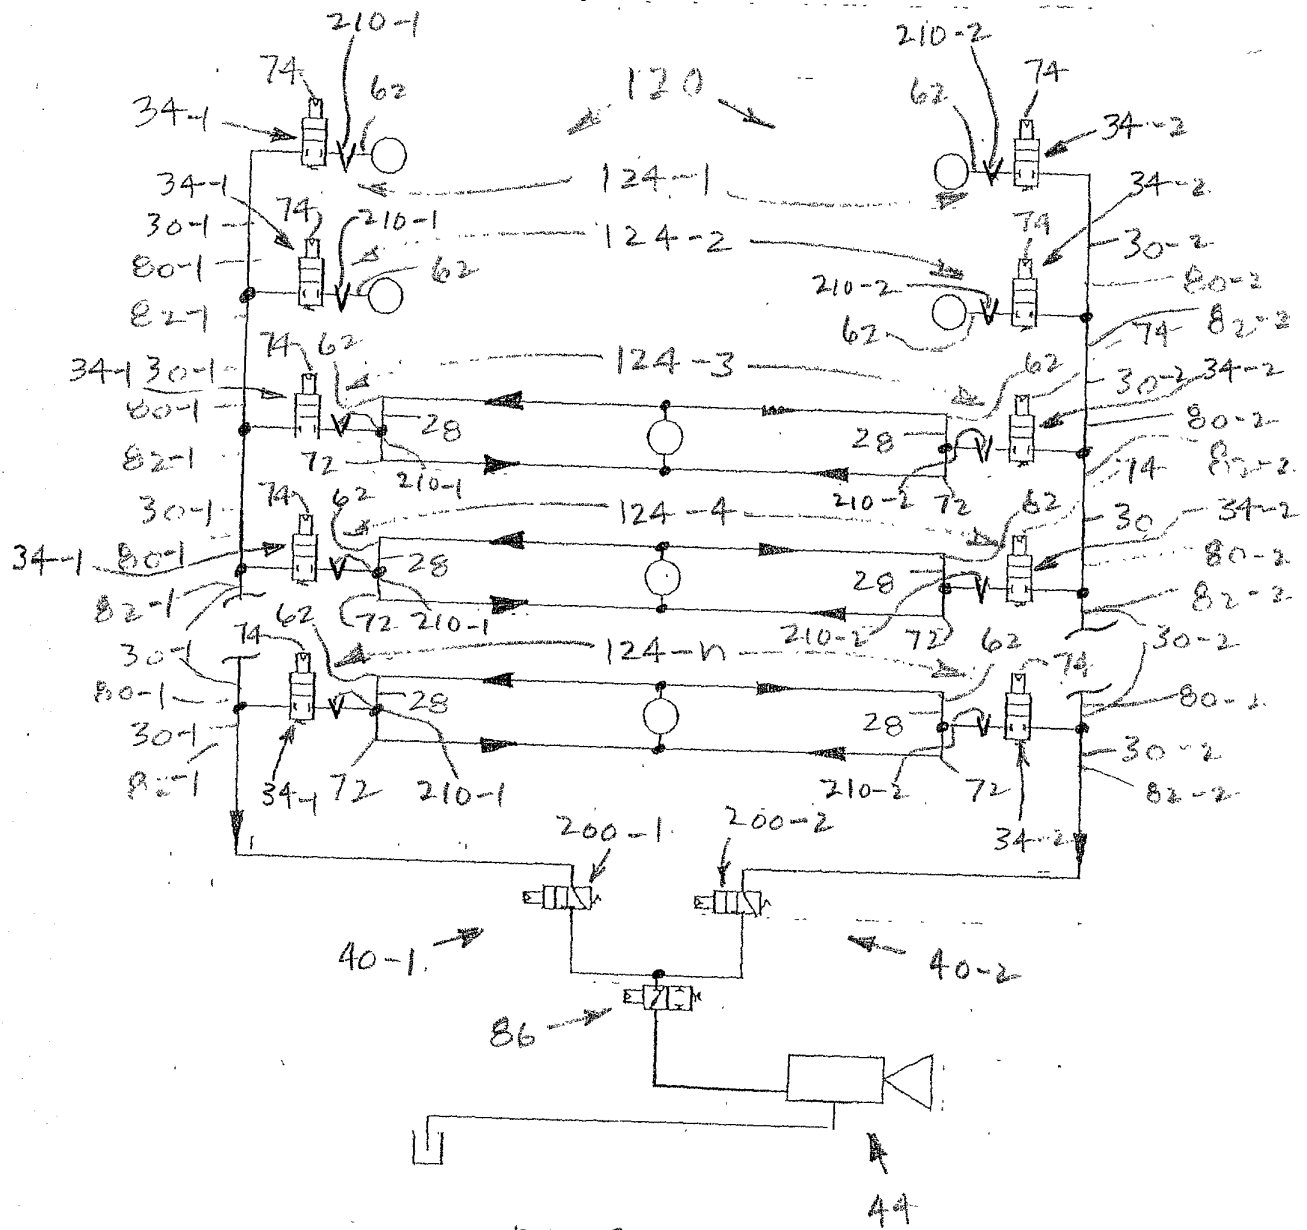 210-1
210-2
74
62
120
62
74
34-1
34-2
124-1
34-1
34-2
30-1
74
210-1
124-2
74
30-2
80-1
62
210-2
80-2
82-1
62
82-2
74
62
124-3
74
62
34-1
30-1
30-2
34-2
80-1
28
28
80-2
82-1
72
210-1
210-2
72
74
82-2
30-1
74
62
124-4
62
30
34-2
34-1
80-1
28
28
80-2
82-1
72
210-1
210-2
72
82-2
30-1
74
62
124-n
62
74
30-2
80-1
28
28
80-2
30-1
30-2
82-1
34-1
72
210-1
210-2
72
82-2
200-1
200-2
34-2
40-1
40-2
86
44